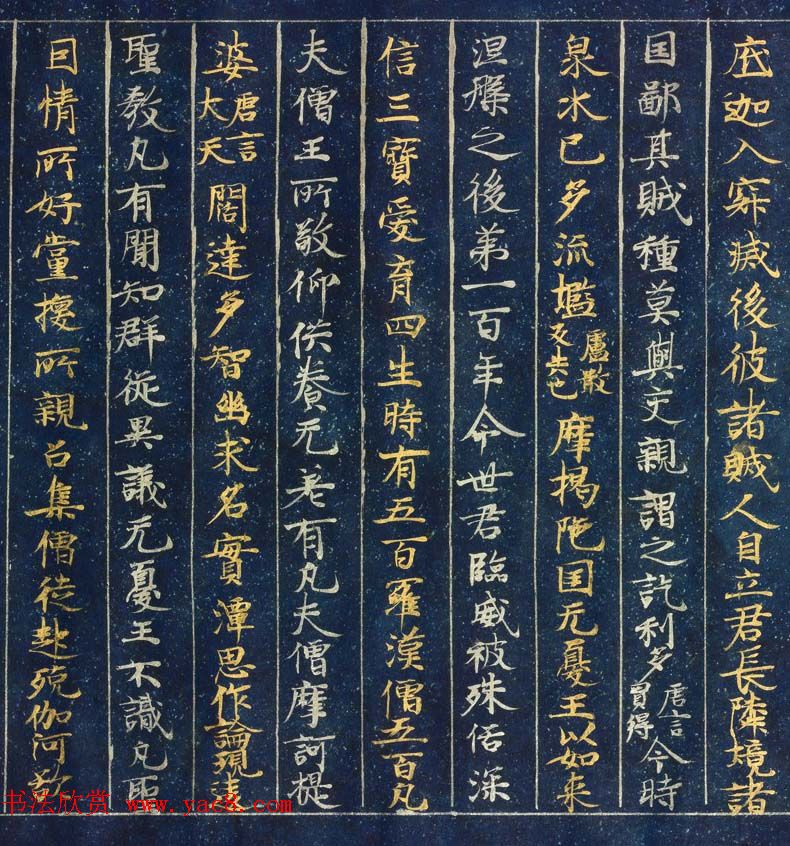 底迦入寂滅後彼諸賊人自立君長隣境諸
国鄙其賊種莫與交親謂之訖利多唐言買得今時
泉水已多流濫盧散又去也摩揭陁国无憂王以如来
涅槃之後第一百年命世君臨威被殊俗深
信三寶愛育四生時有五百羅漢僧五百凡
夫僧王所敬仰供養无差有凡夫僧摩訶提
婆唐言大天闊達多智幽求名實潭思作論理違
聖教凡有聞知群從異議无憂王不識凡聖
因情所好黨援所親召集僧徒赴殑伽河欲
书法欣赏 www.yac8.com